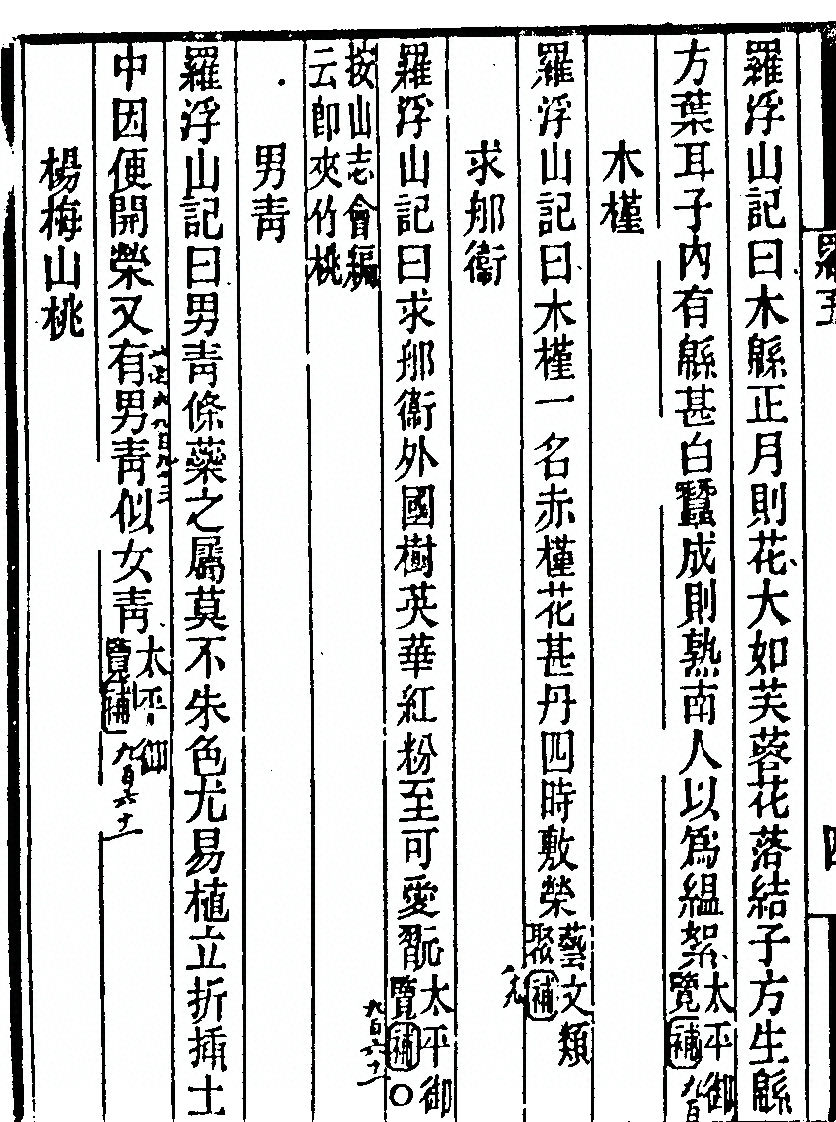 羅浮山記曰木緜正月則花大如芙蓉花落結子方生緜
方葉耳子內有緜甚白蠶成則熟南人以爲緼絮太平御覽補
木槿
羅浮山記曰木槿一名赤槿花甚丹四時敷榮藝文類聚補
求那衞
羅浮山記曰求那衞外國樹英華紅粉至可愛翫太平御覽補○
九百六十一
按山志會編
云卽夾竹桃
男青
羅浮山記曰男青條藥之屬莫不朱色尤易植立折揷土
中因便開榮又有男青似女青太平御覽補
九百六十一
楊梅山桃